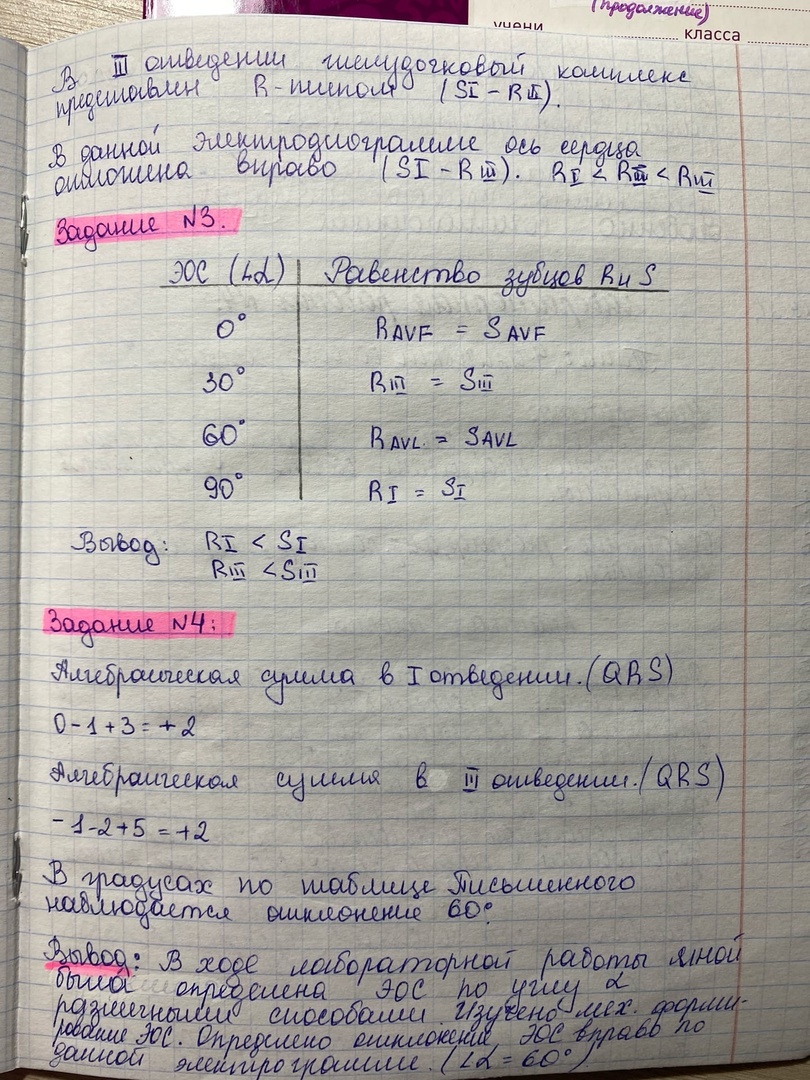 (продолжение)
учени
класса
В III отведении желудочковый комплекс
представлен R-типом (SI – RII).
В данной электродиограмме ось сердца
отложена вправо (SI – RIII). RI < RIII < RIII
Задание N3.
ЭОС (∠α) | Равенство зубцов R и S
0° RAVF = SAVF
30° RIII = SIII
60° RAVL = SAVL
90° RI = SI
Вывод: RI < SI
RIII < SIII
Задание N4:
Алгебраическая сумма в I отведении. (QRS)
0-1+3=+2
Алгебраическая сумма в III отведении. (QRS)
-1-2+5=+2
В градусах по таблице Письменного
наблюдается отклонение 60°.
Вывод: В ходе лабораторной работы мной
была определена ЭОС по углу α
различными способами. Изучено мех. форми-
рование ЭОС. Определено отклонение ЭОС вправо по
данной электрограмме. (∠α = 60°)